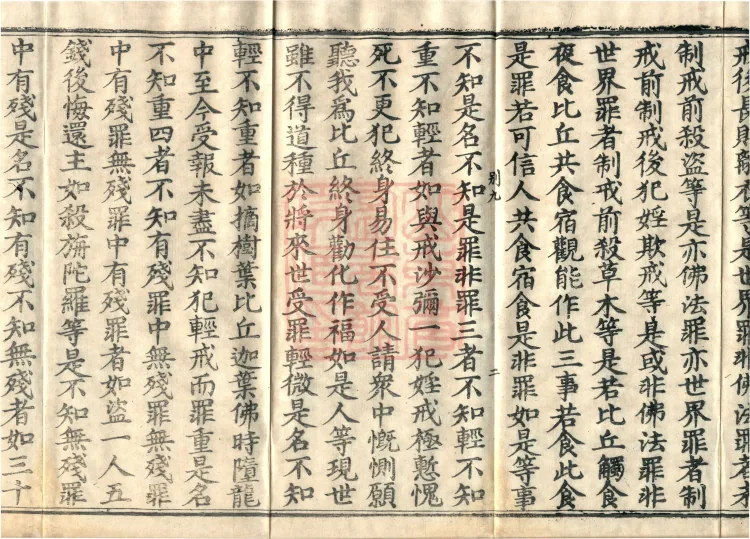 戒後長財離衣等是世界罪非佛法罪者未
制戒前殺盜等是亦佛法罪亦世界罪者制
戒前制戒後犯婬欺戒等是或非佛法罪非
世界罪者制戒前殺草木等是若比丘觸食
夜食比丘共食宿觀能作此三事若食此食
是罪若可信人共食宿食是非罪如是等事
不知是名不知是罪非罪三者不知輕不知
重不知輕者如與戒沙彌一犯婬戒極慙愧
死不更犯終身易住不受人請衆中慨惻願
聽我爲比丘終身勸化作福如是人等現世
雖不得道種於將來世受罪輕微是名不知
輕不知重者如摘樹葉比丘迦葉佛時墮龍
中至今受報未盡不知犯輕戒而罪重是名
不知重四者不知有殘罪中無殘罪無殘罪
中有殘罪無殘罪中有殘罪者如盜一人五
錢後悔還主如殺旃陀羅等是不知無殘罪
中有殘是名不知有殘不知無殘者如三十
別九
二